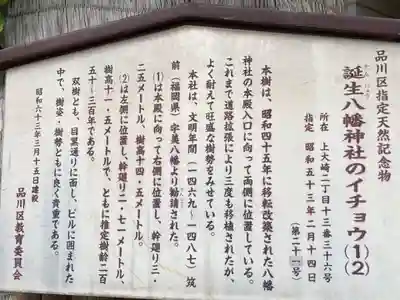 品川区指定天然記念物
誕生八幡神社のイチョウ(1)(2)
たん じょう
所在 上大崎二丁目十三番三十六号
指定 昭和五十三年二月十四日
(第二十一号)
本樹は、昭和四十五年に移転改築された八幡
神社の本殿入口に向って両側に位置している。
これまで道路拡張により三度も移植されたが、
よく耐えて旺盛な樹勢をみせている。
本社は、文明年間(一四六九〜一四八七)筑
前(福岡県)宇美八幡より勧請された。
(1)は本殿に向って右側に位置し、幹廻り三・
二五メートル、樹高十四・五メートル。
(2)は左側に位置し、幹廻り二・七一メートル、
樹高十一・五メートルで、ともに推定樹齢二百
五十〜三百年である。
双樹とも、目黒通りに面し、ビルに囲まれた
中で、樹姿・樹勢ともに良く貴重である。
昭和六十三年三月十五日建設
品川区教育委員会